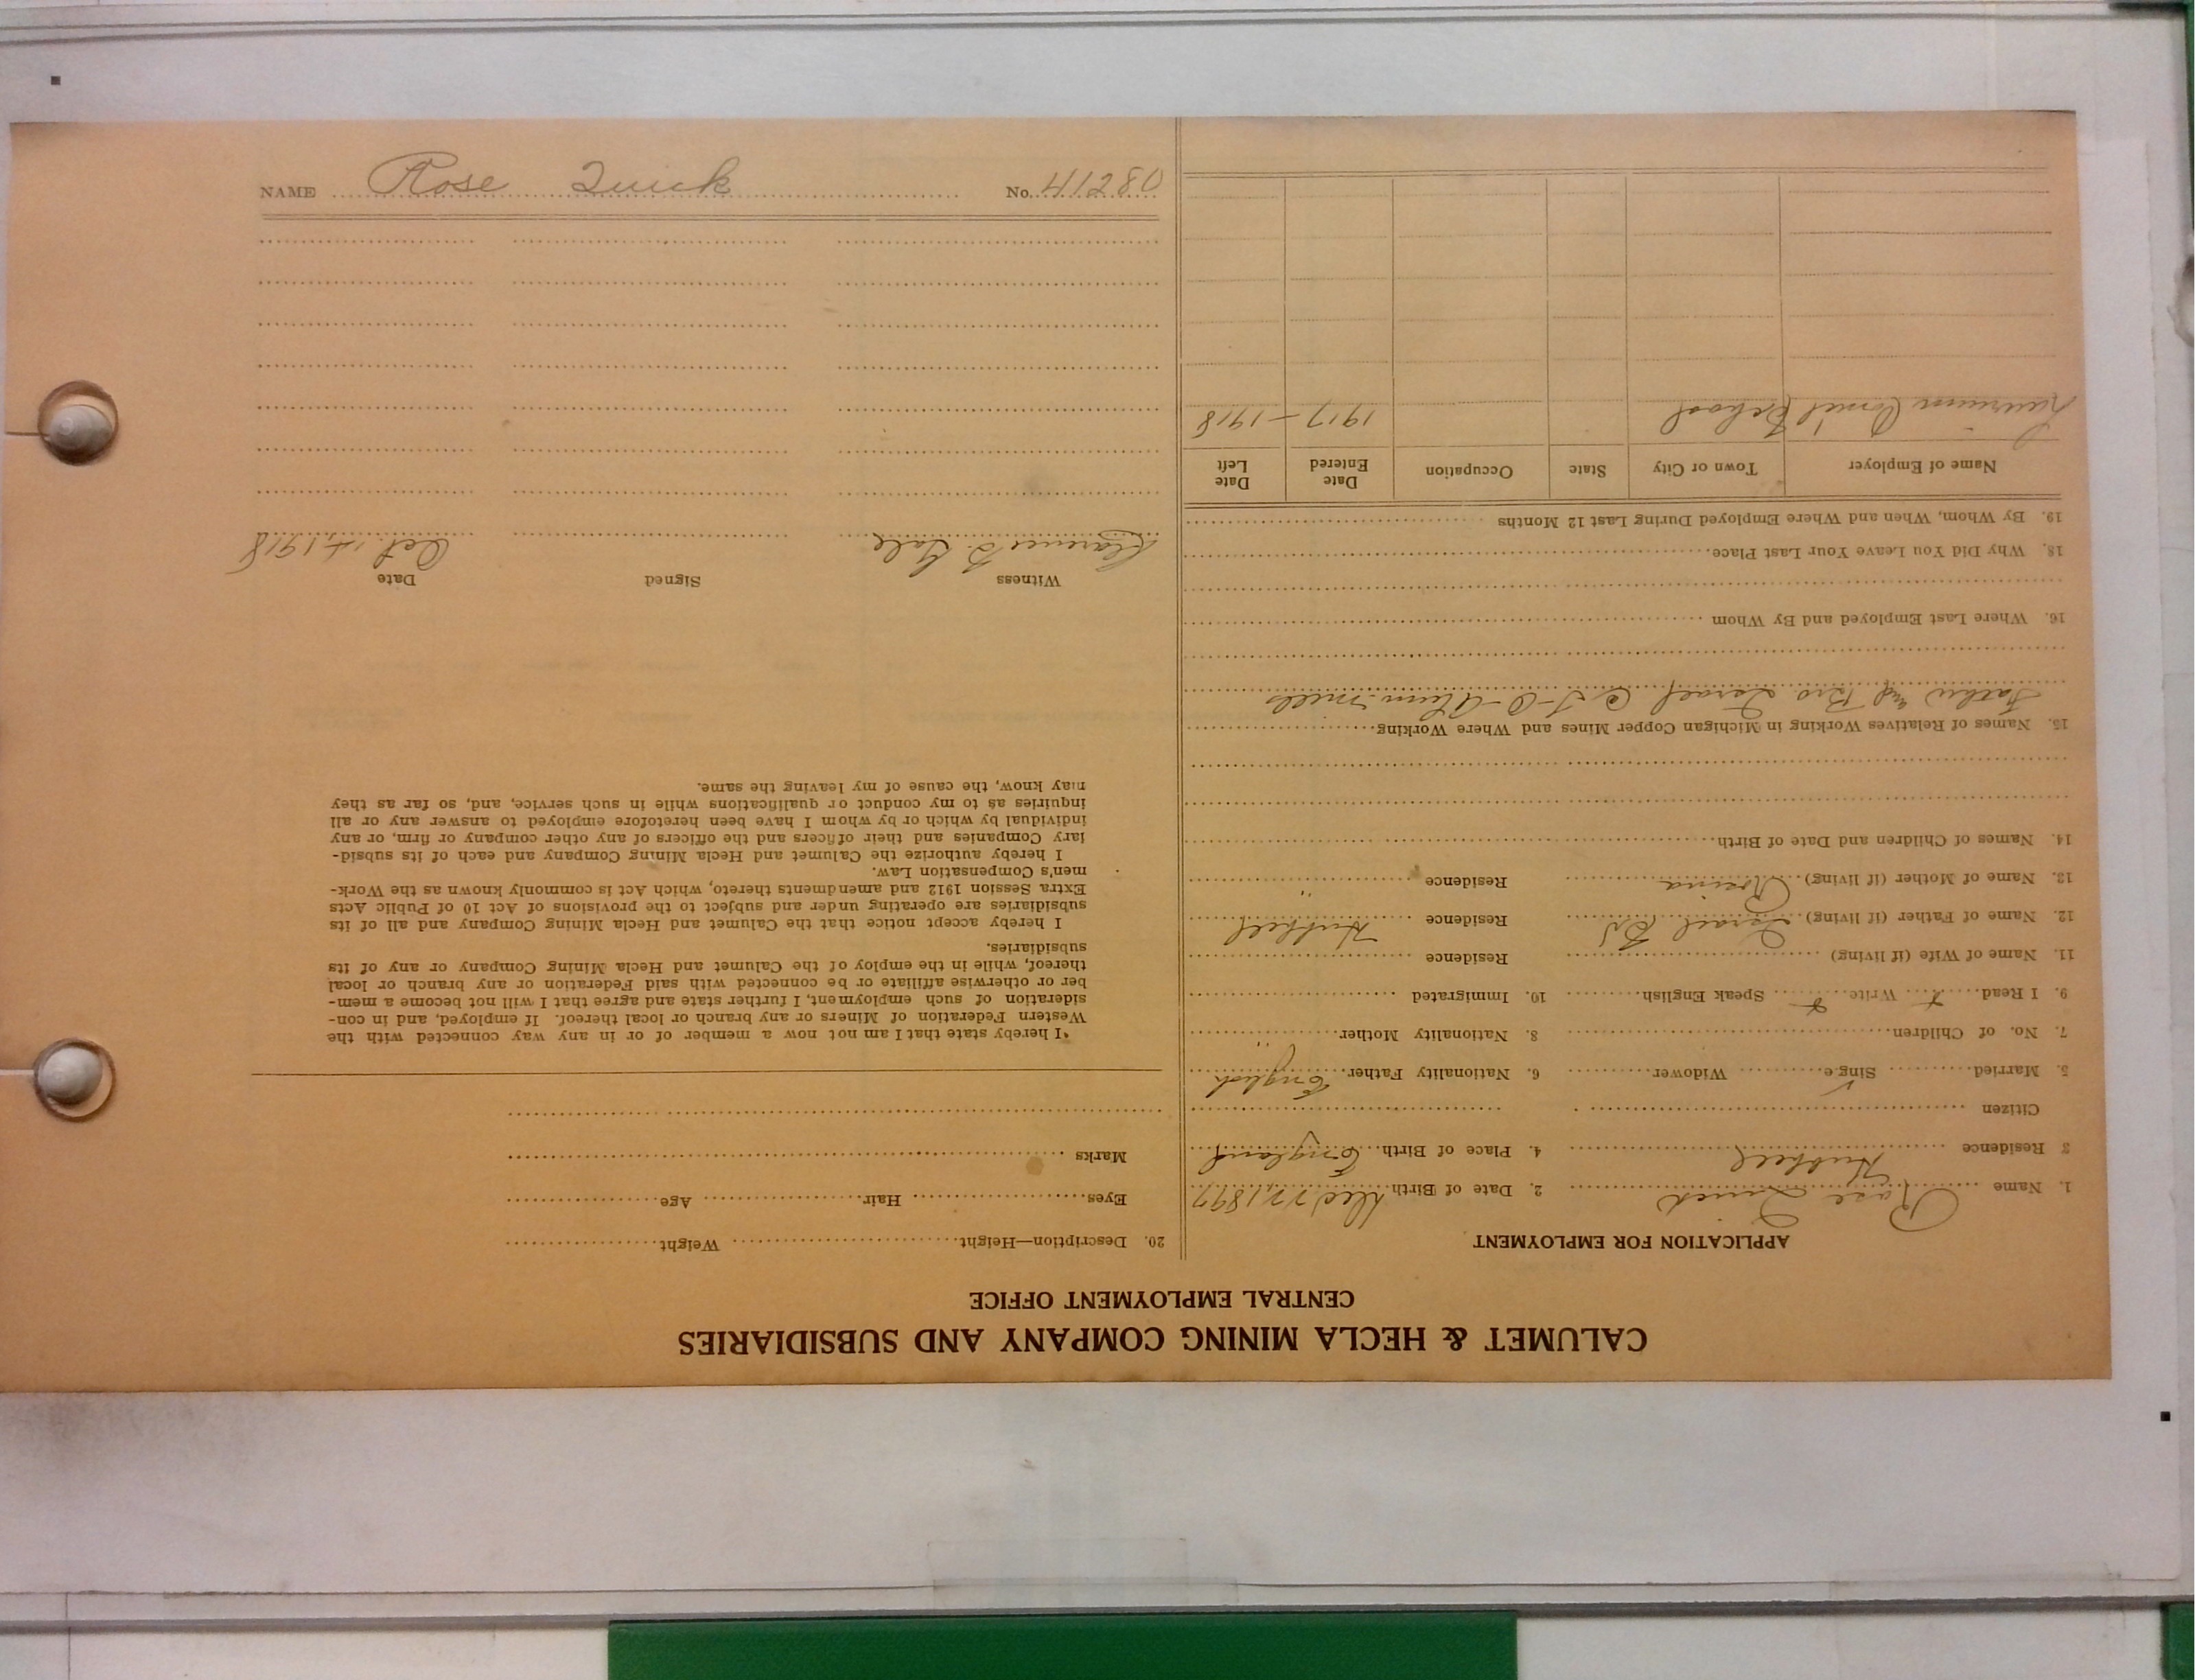 CALUMET & HECLA MINING COMPANY AND SUBSIDIARIES
CENTRAL EMPLOYMENT OFFICE
APPLICATION FOR EMPLOYMENT
1. Name Rose Quick 2. Date of Birth Dec 22, 1897
3 Residence Hubbell 4. Place of Birth England
Citizen
5. Married Single ✓ Widower 6. Nationality Father English
7. No. of Children 8. Nationality Mother "
9. I Read x Write x Speak English 10. Immigrated
11. Name of Wife (if living) Residence
12. Name of Father (if living) Israel Residence Hubbell
13. Name of Mother (if living) Rosina Residence "
14. Names of Children and Date of Birth
15. Names of Relatives Working in Michigan Copper Mines and Where Working
Father and Bro Israel Mills
16. Where Last Employed and By Whom
18. Why Did You Leave Your Last Place
19. By Whom, When and Where Employed During Last 12 Months
Name of Employer Town or City State Occupation Date Entered Date Left
Laurium School 1917 - 1918
20. Description—Height Weight
Eyes Hair Age
Marks
"I hereby state that I am not now a member of or in any way connected with the
Western Federation of Miners or any branch or local thereof. If employed, and in con-
sideration of such employment, I further state and agree that I will not become a mem-
ber or otherwise affiliate or be connected with said Federation or any branch or local
thereof, while in the employ of the Calumet and Hecla Mining Company or any of its
subsidiaries.
I hereby accept notice that the Calumet and Hecla Mining Company and all of its
subsidiaries are operating under and subject to the provisions of Act 10 of Public Acts
Extra Session 1912 and amendments thereto, which Act is commonly known as the Work-
men's Compensation Law.
I hereby authorize the Calumet and Hecla Mining Company and each of its subsid-
iary Companies and their officers and the officers of any other company or firm, or any
individual by which or by whom I have been heretofore employed to answer any or all
inquiries as to my conduct or qualifications while in such service, and, so far as they
may know, the cause of my leaving the same.
Witness Signed Date
Clarence D. Gale Oct. 14, 1918
NAME Rose Quick No. 41280